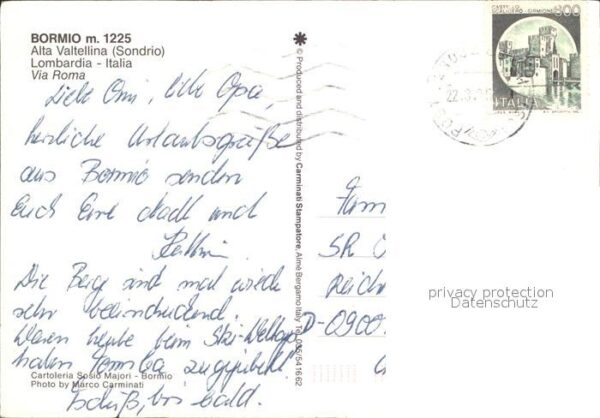 BORMIO m. 1225
Alta Valtellina (Sondrio)
Lombardia - Italia
Via Roma
Liebe Omi, liebe Opa,
herzliche Urlaubsgrüße
aus Bormio senden
Euch Eure und
Die Berge sind mal wieder
sehr beeindruckend.
Waren heute beim Ski-Weltcup
haben Tomba zugejubelt!
Tschüß, bis bald.
Cartoleria Sosio Majori - Bormio
Photo by Marco Carminati
© Produced and distributed by Carminati Stampatore, Almè Bergamo Italy Tel. 035/541662
300
ITALIA
Fam
SR
Reich
D-0900
privacy protection
Datenschutz